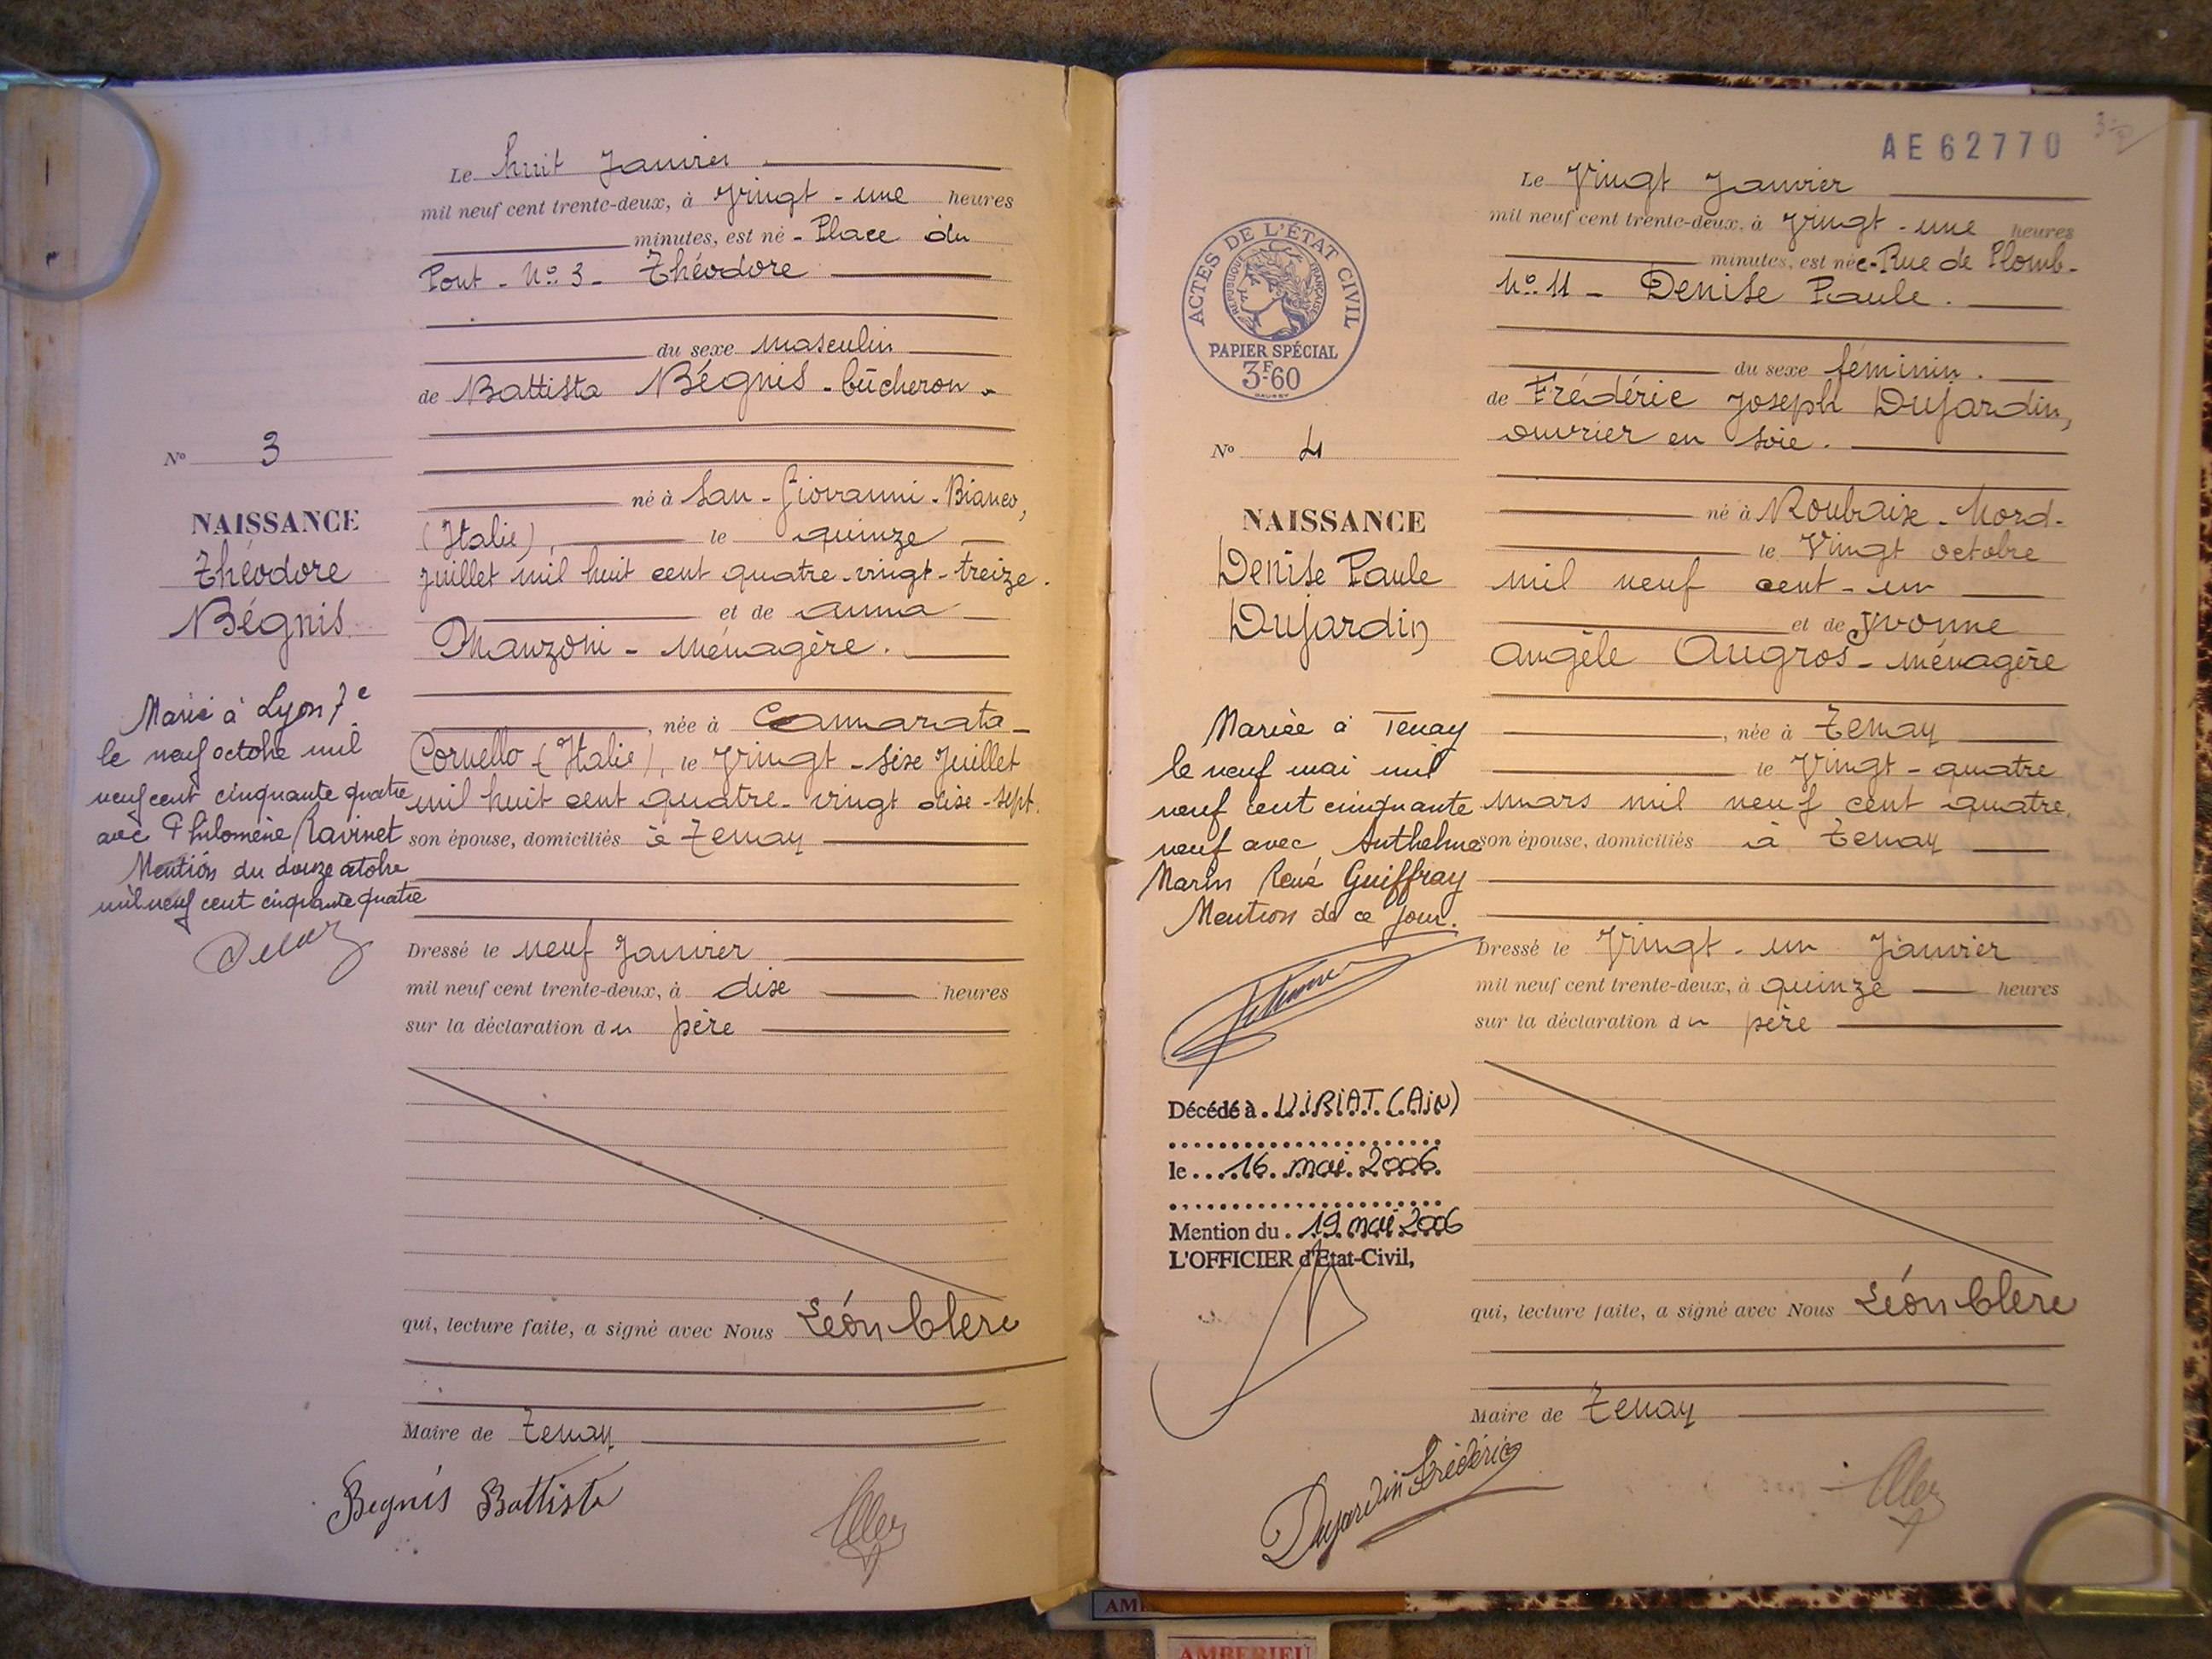 Le huit Janvier
mil neuf cent trente-deux, à Vingt - une heures
minutes, est né - Place du
Pont - N° 3 - Théodore
du sexe masculin
de Battista Bégnis - bûcheron -
N° 3
NAISSANCE
Théodore
Bégnis
né à San - Giovanni - Bianco,
(Italie), le quinze
Juillet mil huit cent quatre-vingt-treize.
et de Anna
Manzoni - Ménagère.
née à Cammarata -
Cornello (Italie), le Vingt - sixe Juillet
mil huit cent quatre-vingt dixe-sept.
son épouse, domiciliés à Tenay
Marié à Lyon 7e
le neuf octobre mil
neuf cent cinquante quatre
avec Philomène Ravinet
Mention du douze octobre
mil neuf cent cinquante quatre
Dressé le neuf Janvier
mil neuf cent trente-deux, à dixe heures
sur la déclaration du père
qui, lecture faite, a signé avec Nous Léon Clerc
Maire de Tenay
Begnis Battista
AE 62770
ACTES DE L'ÉTAT CIVIL
RÉPUBLIQUE FRANÇAISE
PAPIER SPÉCIAL
3F60
Le Vingt Janvier
mil neuf cent trente-deux, à Vingt - une heures
minutes, est née - Rue de Plomb -
N° 11 - Denise Paule.
du sexe féminin.
de Frédéric Joseph Dujardin,
ouvrier en soie.
N° 4
NAISSANCE
Denise Paule
Dujardin
né à Roubaix - Nord -
le Vingt octobre
mil neuf cent - un
et de Yvonne
Angèle Augros - ménagère
née à Tenay
le Vingt - quatre
mars mil neuf cent quatre.
son épouse, domiciliés à Tenay
Mariée à Tenay
le neuf mai mil
neuf cent cinquante
neuf avec Anthelme
Marin René Guiffray
Mention de ce jour.
Dressé le Vingt - un Janvier
mil neuf cent trente-deux, à quinze heures
sur la déclaration du père
Décédé à VIRIAT (AiN)
le 16 mai 2006
Mention du 19 mai 2006
L'OFFICIER d'Etat-Civil,
qui, lecture faite, a signé avec Nous Léon Clerc
Maire de Tenay
Dujardin Frédéric
AMBERIEU